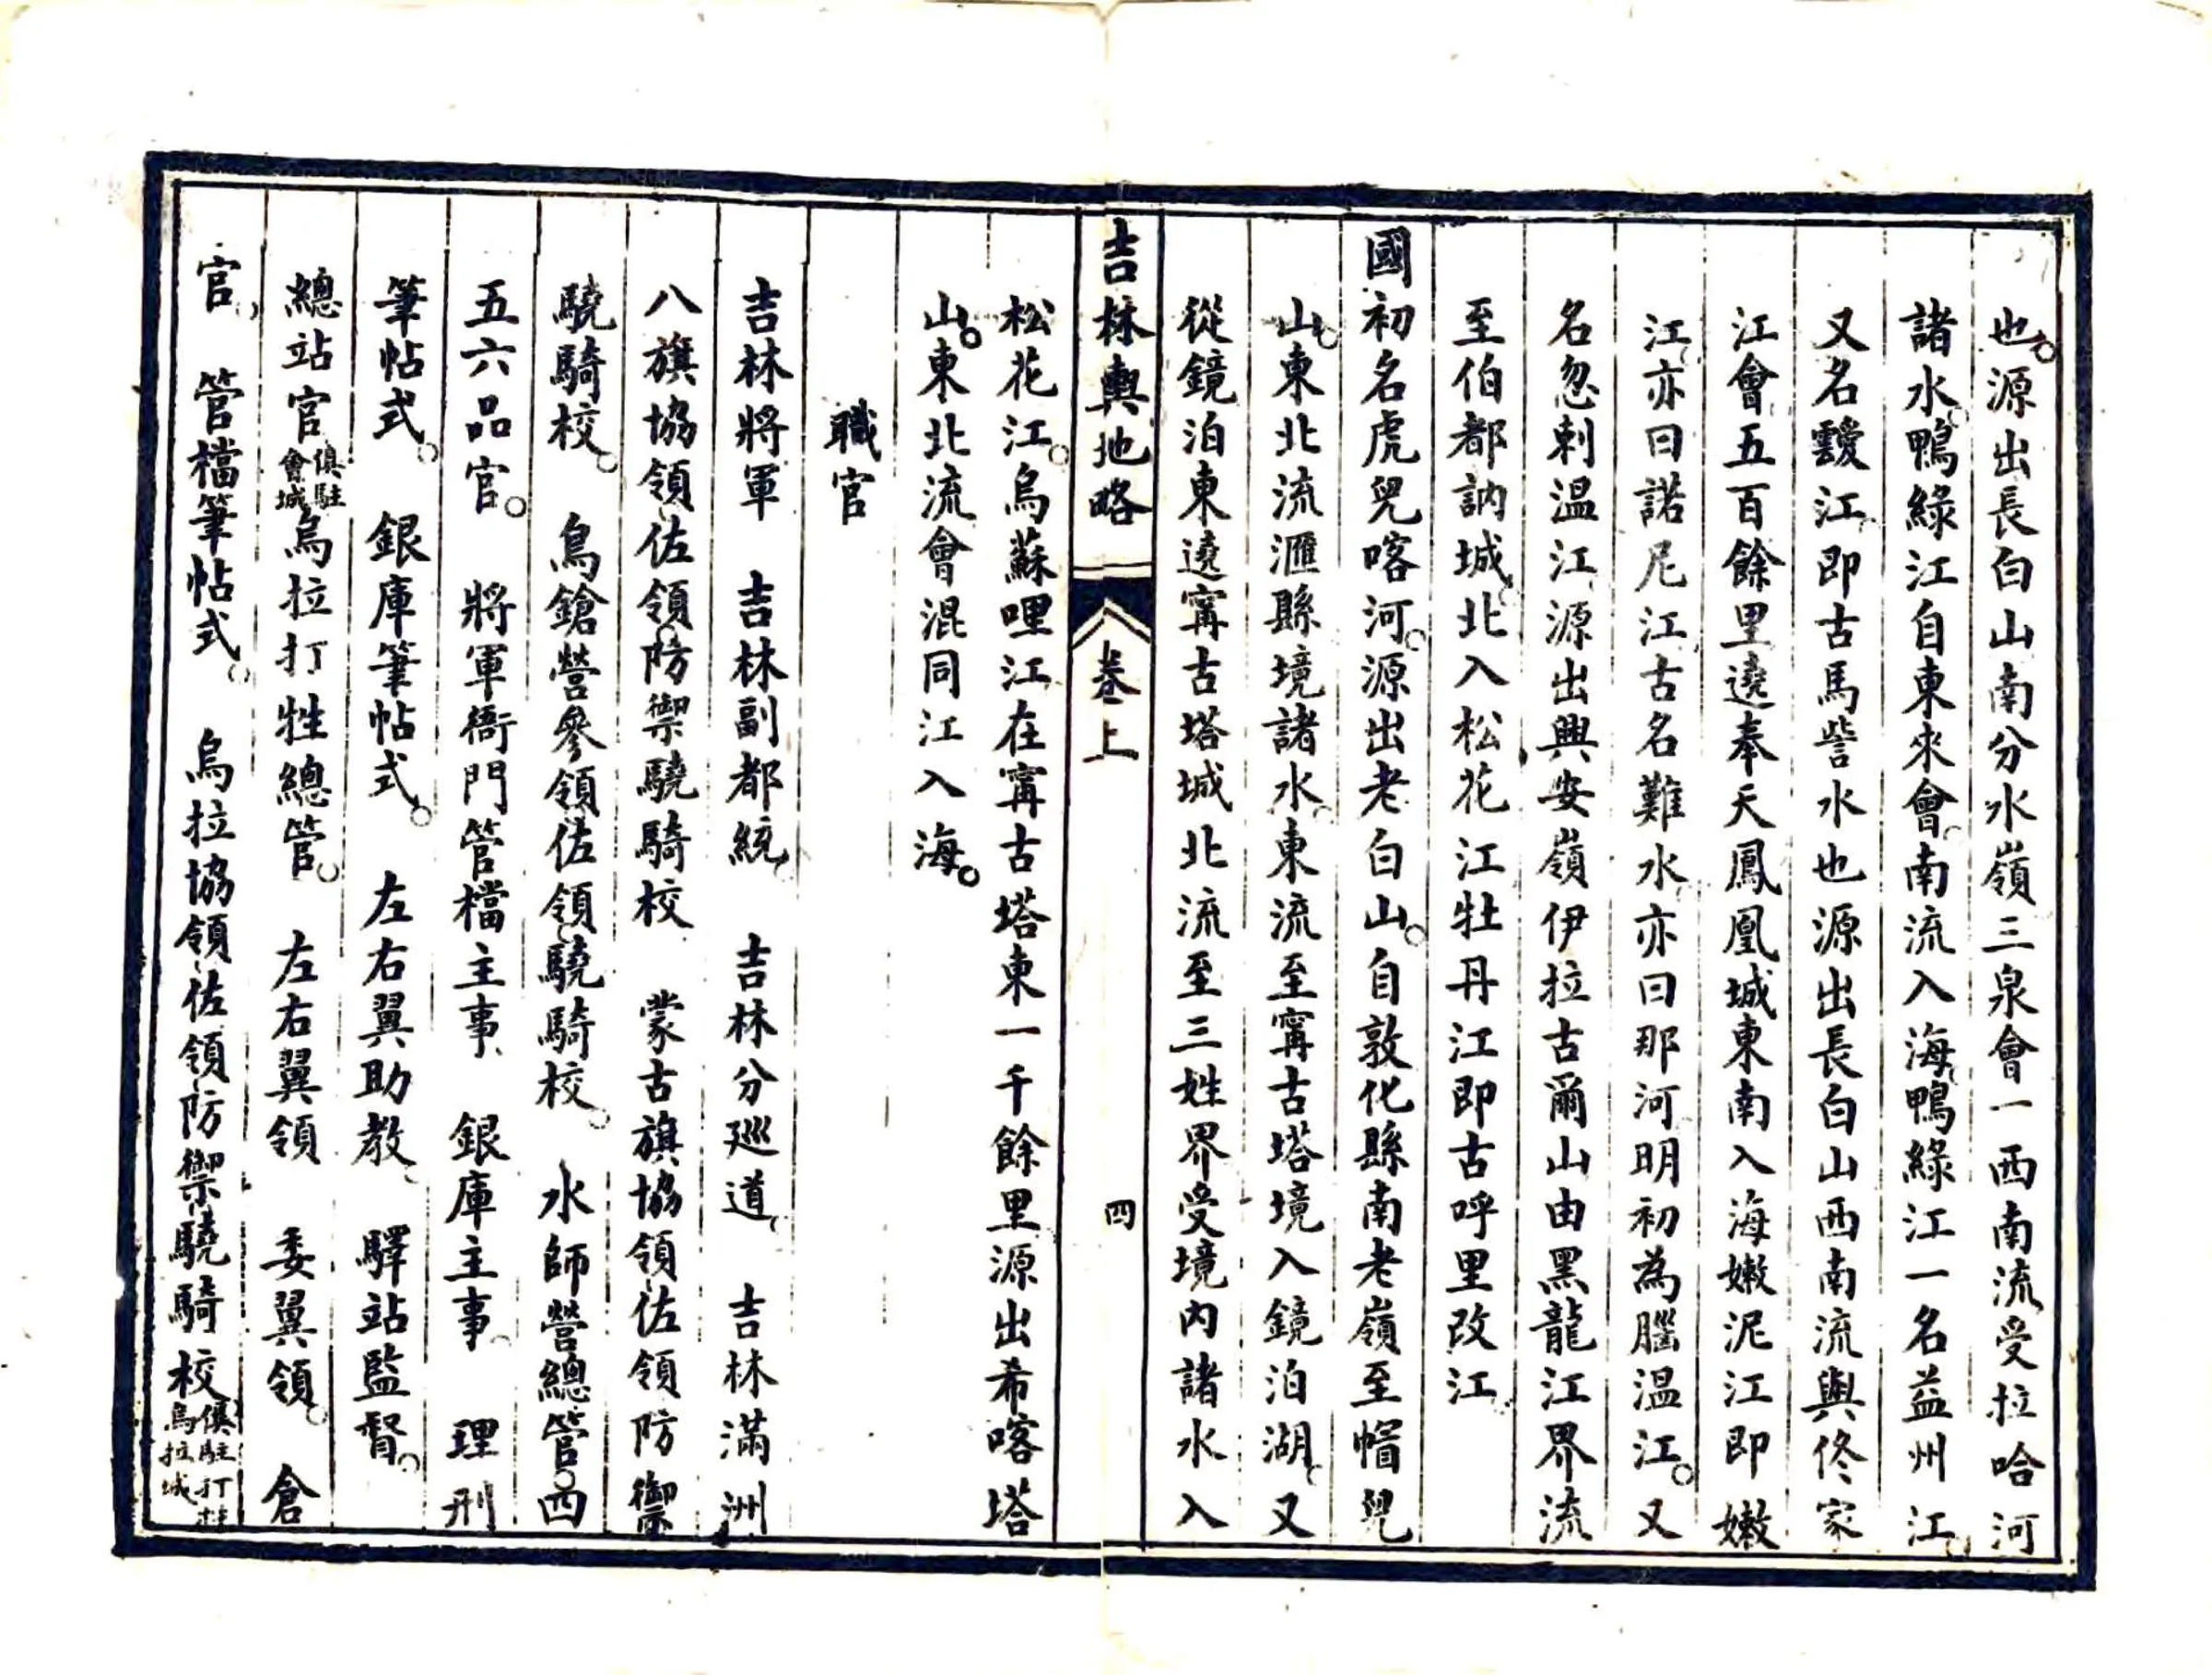 也。源出長白山南分水嶺三泉會一西南流受拉哈河
諸水鴨綠江自東來會南流入海鴨綠江一名益州江
又名靉江即古馬訾水也源出長白山西南流與佟家
江會五百餘里遶奉天鳳凰城東南入海嫩泥江即嫩
江亦曰諾尼江古名難水亦曰那河明初為腦温江。又
名忽剌温江源出興安嶺伊拉古爾山由黑龍江界流
至伯都訥城北入松花江牡丹江即古呼里改江
國初名虎兒喀河。源出老白山。自敦化縣南老嶺至帽兒
山。東北流滙縣境諸水東流至寗古塔境入鏡泊湖又
從鏡泊東遶寗古塔城北流至三姓界受境内諸水入
吉林輿地略 卷上 四
松花江。烏蘇哩江在寗古塔東一千餘里源出希喀塔
山。東北流會混同江入海。
職官
吉林將軍 吉林副都統 吉林分巡道 吉林滿洲
八旗協領佐領防禦驍騎校 蒙古旗協領佐領防禦
驍騎校。 鳥鎗營參領佐領驍騎校。 水師營總管。四
五六品官。 將軍衙門管檔主事 銀庫主事 理刑
筆帖式。 銀庫筆帖式。 左右翼助教 驛站監督。
總站官俱駐會城烏拉打牲總管。 左右翼領 委翼領。 倉
官 管檔筆帖式。 烏拉協領佐領防禦驍騎校俱駐打牲烏拉城